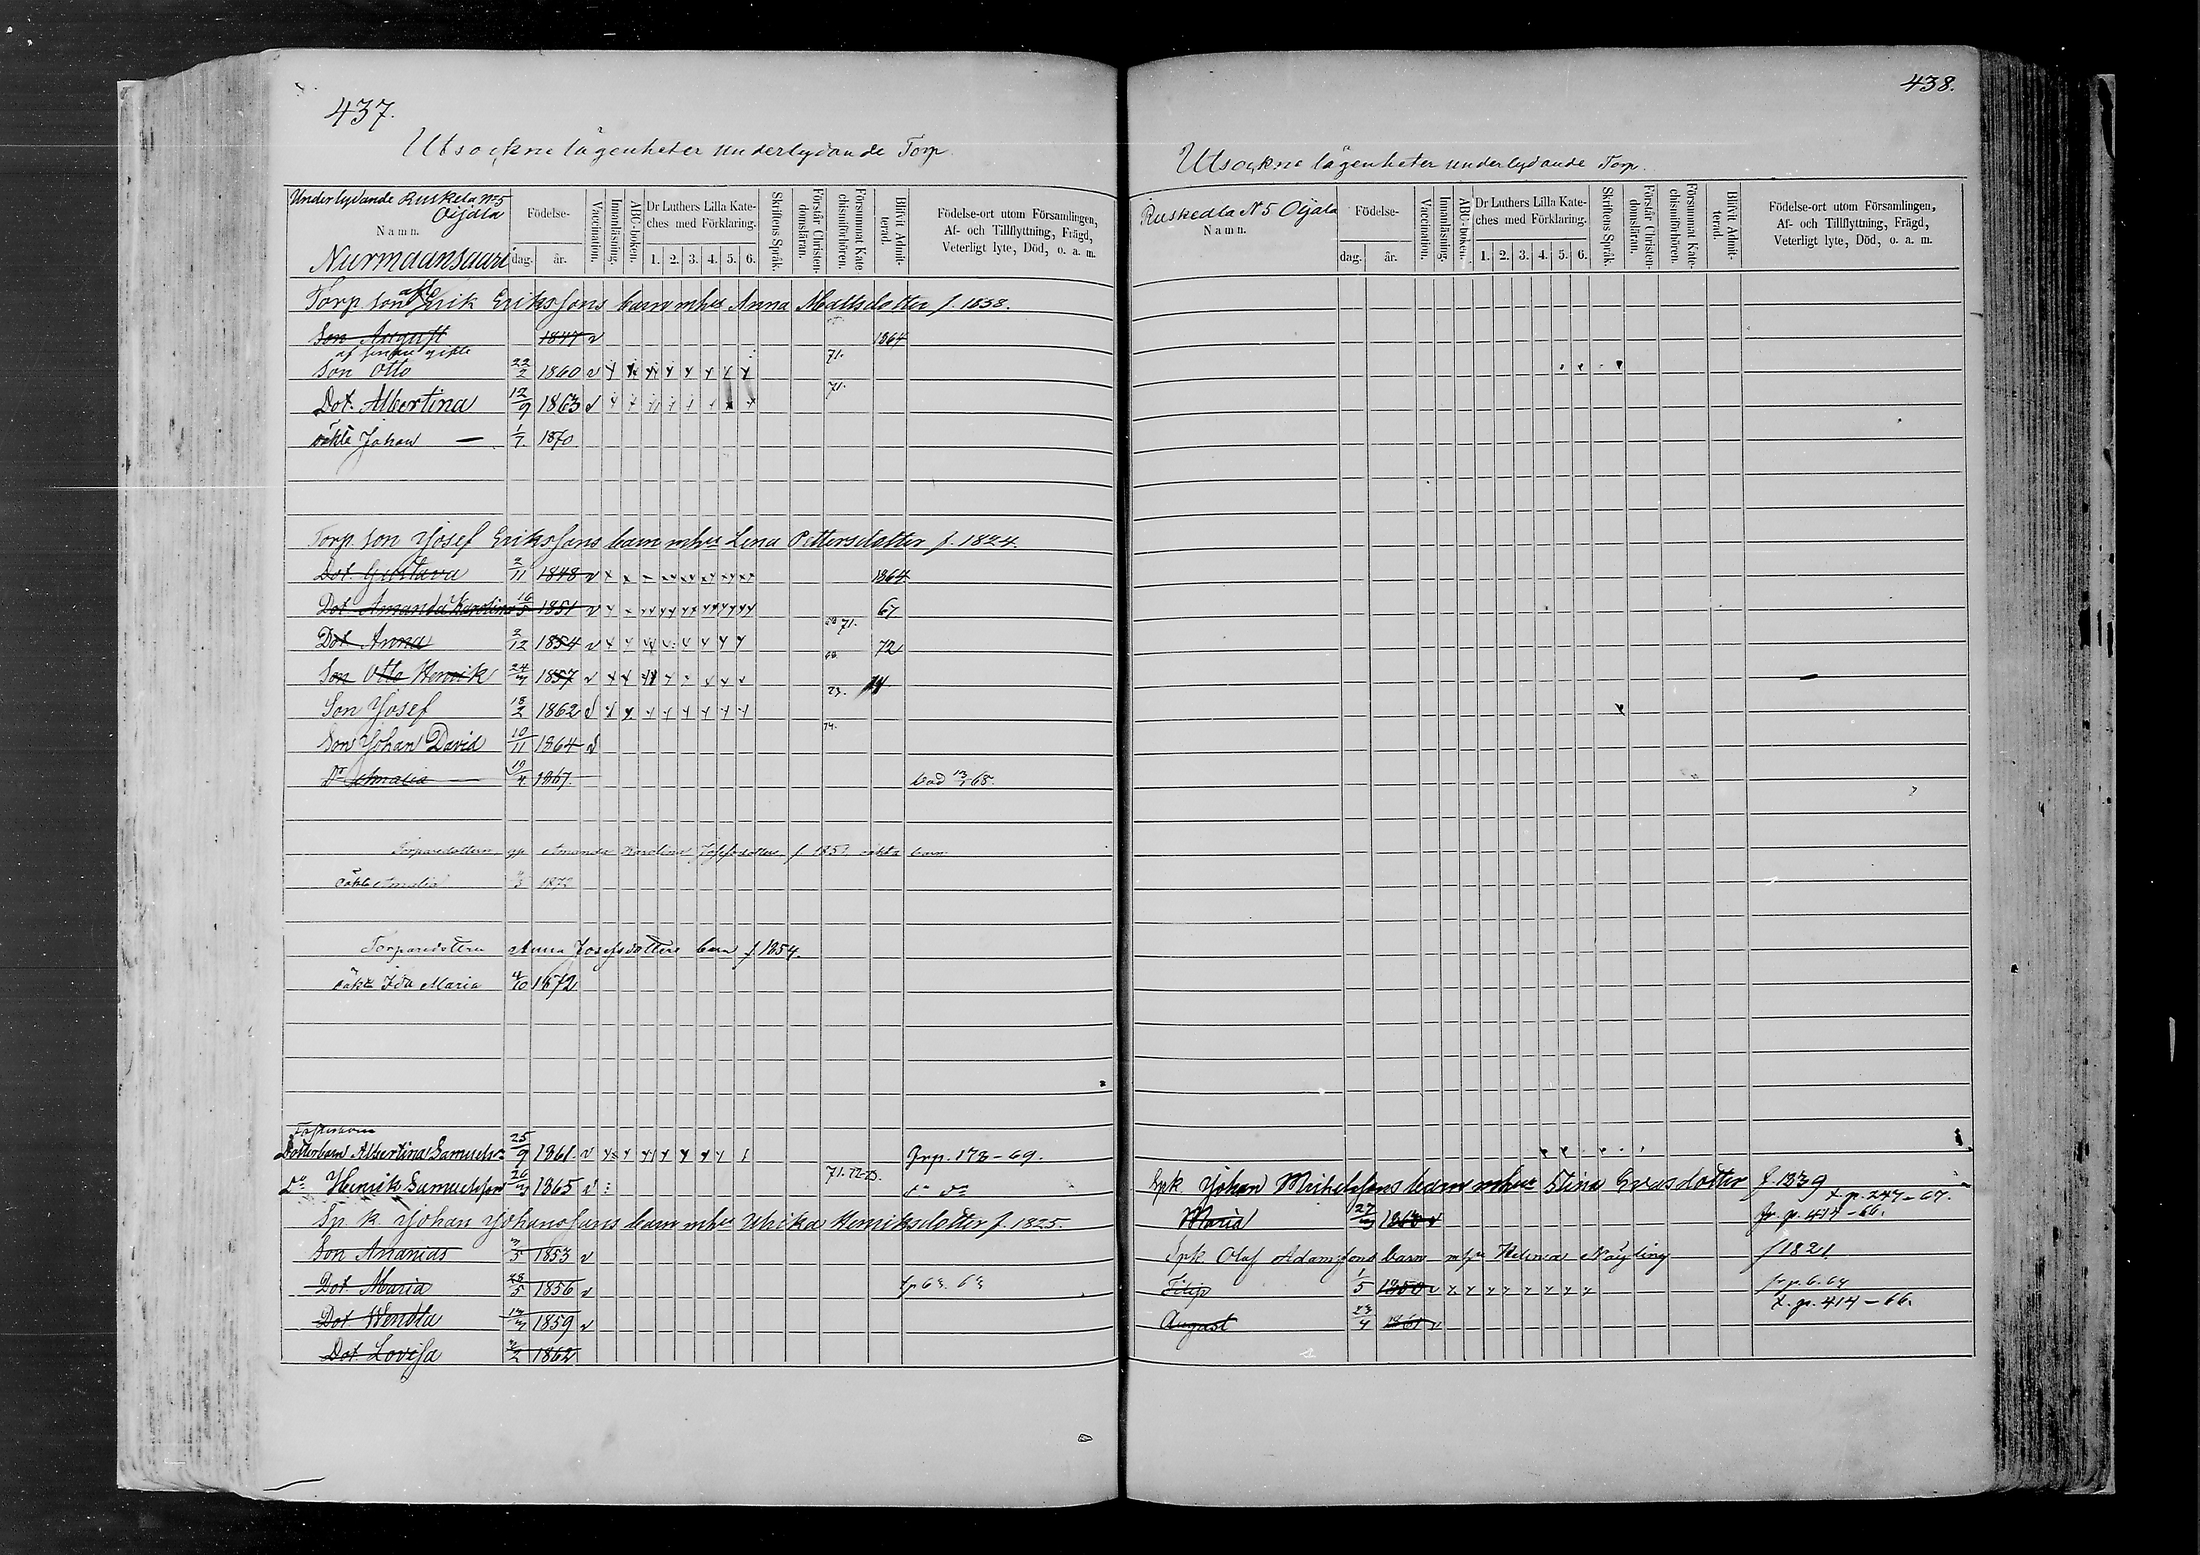 437.
Utsockne lägenheter underlydande Torp
Underlydande Ruskela No 5
Oijala
Namn.
Nurmaansaari
Födelse-
dag. år.
Vaccination.
Innanläsning.
ABC-boken.
Dr Luthers Lilla Kate-
ches med Förklaring.
1. 2. 3. 4. 5. 6.
Skriftens Språk.
Förstår Christen-
domsläran.
Försummat Kate-
chismiförhören.
Blifvit Admit-
terad.
Födelse-ort utom Församlingen,
Af- och Tillflyttning, Frägd,
Veterligt lyte, Död, o. a. m.
Torp son Erik Erikssons barn mhu Anna Mattsdotter f. 1838.
Son August 1847 v 1864
af senare gifte 71.
Son Otto 22/2 1860 v
71.
Dot. Albertina 12/9 1863 v
oäkta Johan — 1/7. 1870
Torp. son Josef Erikssons barn mhu Lena Pettersdotter f. 1824.
Dot. Gustava 2/11 1848 v 1864
Dot Amanda Karolina 16/5 1851 v 67.
71.
Dot Anna 2/12 1854 v 72
Son Otto Henrik 24/7 1857 v
73.
Son Josef 18/2 1862 v
74.
Son Johan David 10/11 1864 v
Dr Amalia 19/4 1867. död 13/1 68.
Torparedottern Amanda Karolina Josefsdotters f. 1851 oäkta barn
oäkta Amalia 1872
Torparedottern Anna Josefsdotters barn f. 1854.
oäkta Ida Maria 4/10 1872
Dotterbarn Albertina Samuels 25/9 1861. v frp. 173-69.
71. 72-73.
Do Henrik Samuelsson 1865 v do do
Sp. k. Johan Johanssons barn mhu Ulrika Henriksdotter f. 1825.
Son Ananias 3/5 1853 v
Dot. Maria 28/5 1856 v
Dot Wendla 1859 v
Dot. Lovisa 1862
438.
Utsockne lägenheter underlydande Torp.
Ruskedla N 5 Oijala
Namn.
Födelse-
dag. år.
Vaccination.
Innanläsning.
ABC-boken.
Dr Luthers Lilla Kate-
ches med Förklaring.
1. 2. 3. 4. 5. 6.
Skriftens Språk.
Förstår Christen-
domsläran.
Försummat Kate-
chismiförhören.
Blifvit Admit-
terad.
Födelse-ort utom Församlingen,
Af- och Tillflyttning, Frägd,
Veterligt lyte, Död, o. a. m.
Spk. Johan Mickelssons barn mhu Stina Evasdotter f. 1839
t. p. 247-67.
Maria 1863 v fr. p. 414-66.
Spk. Olaf Adamssons barn mhu Helena f 1821
Filip 1/5 1850 v fr p. 6. 64
t. p. 414-66.
August 23/4 1861 v